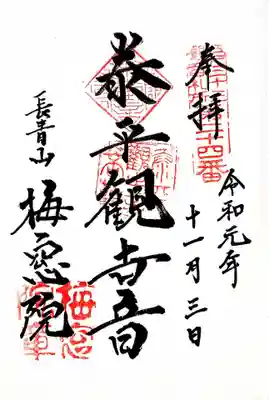 奉拝
令和元年
十一月三日
泰平観世音
長青山
梅窓院